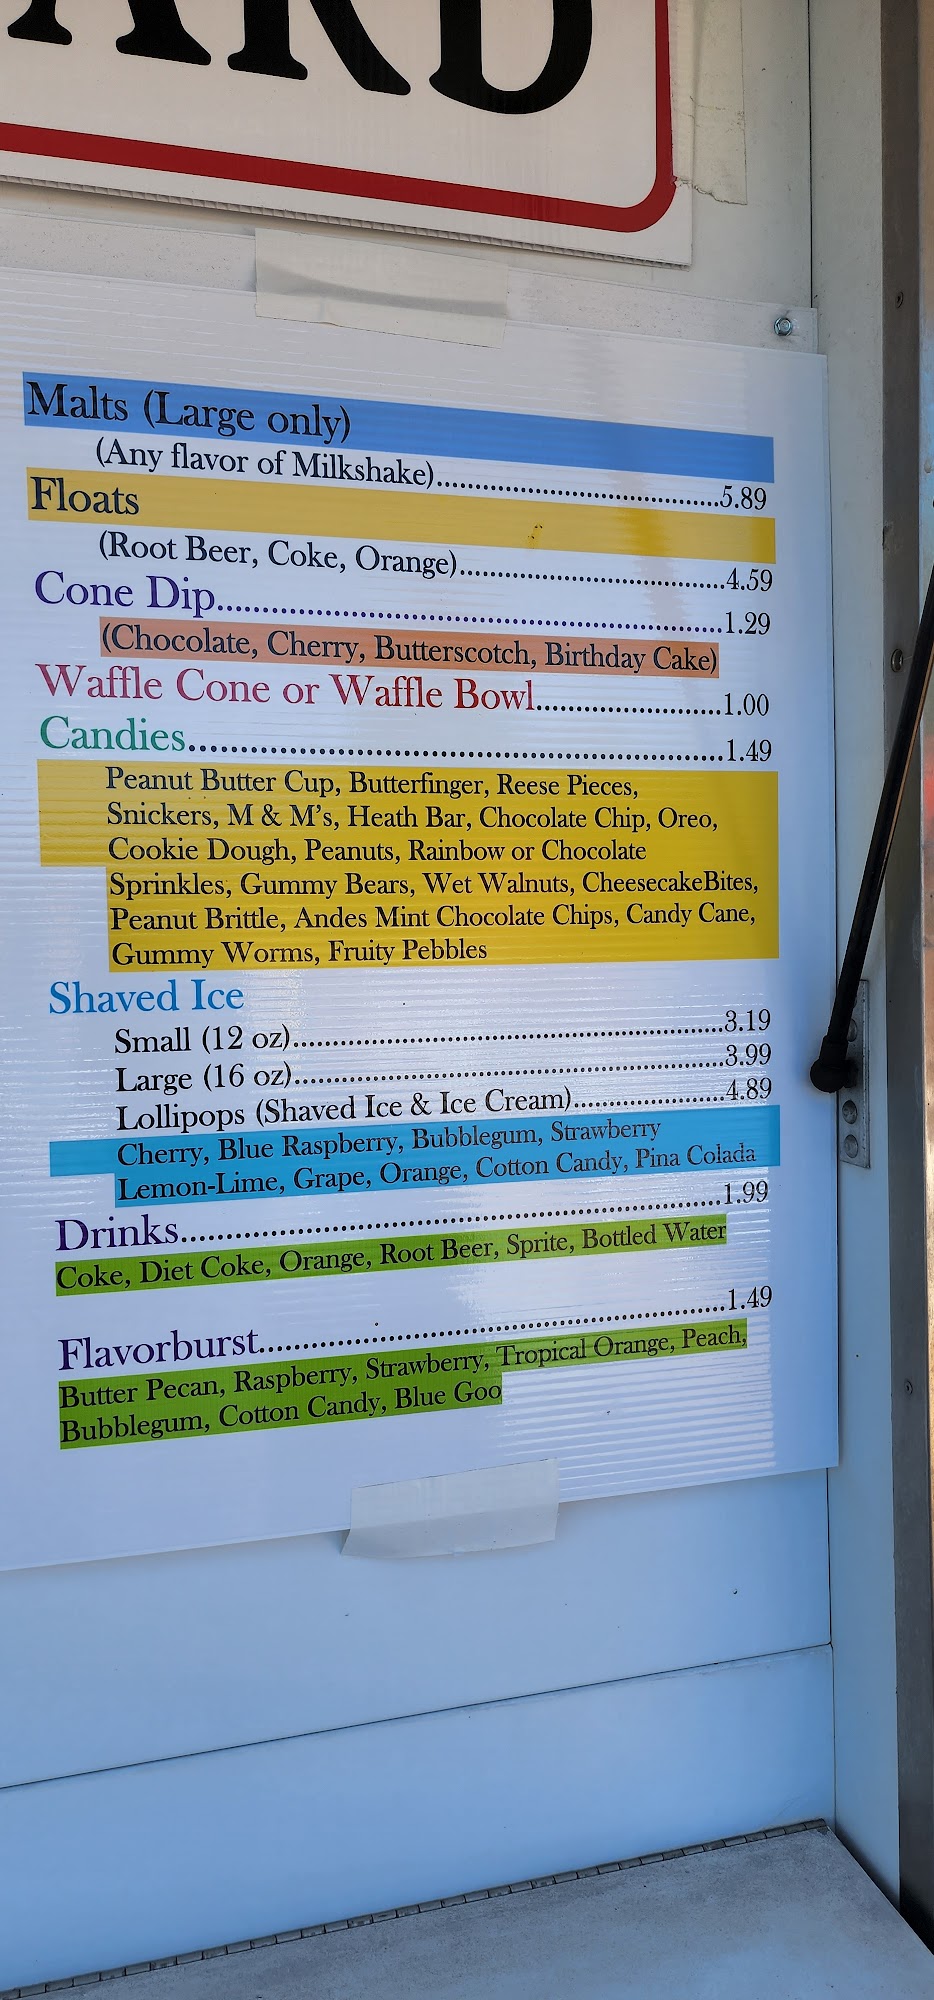 ARD
Malts (Large only)
(Any flavor of Milkshake)..................................................5.89
Floats
(Root Beer, Coke, Orange)...............................................4.59
Cone Dip.........................................................................1.29
(Chocolate, Cherry, Butterscotch, Birthday Cake)
Waffle Cone or Waffle Bowl..........................1.00
Candies..........................................................................1.49
Peanut Butter Cup, Butterfinger, Reese Pieces,
Snickers, M & M's, Heath Bar, Chocolate Chip, Oreo,
Cookie Dough, Peanuts, Rainbow or Chocolate
Sprinkles, Gummy Bears, Wet Walnuts, CheesecakeBites,
Peanut Brittle, Andes Mint Chocolate Chips, Candy Cane,
Gummy Worms, Fruity Pebbles
Shaved Ice
Small (12 oz)..................................................................3.19
Large (16 oz)..................................................................3.99
Lollipops (Shaved Ice & Ice Cream).......................4.89
Cherry, Blue Raspberry, Bubblegum, Strawberry
Lemon-Lime, Grape, Orange, Cotton Candy, Pina Colada
Drinks............................................................................1.99
Coke, Diet Coke, Orange, Root Beer, Sprite, Bottled Water
Flavorburst.....................................................................1.49
Butter Pecan, Raspberry, Strawberry, Tropical Orange, Peach,
Bubblegum, Cotton Candy, Blue Goo